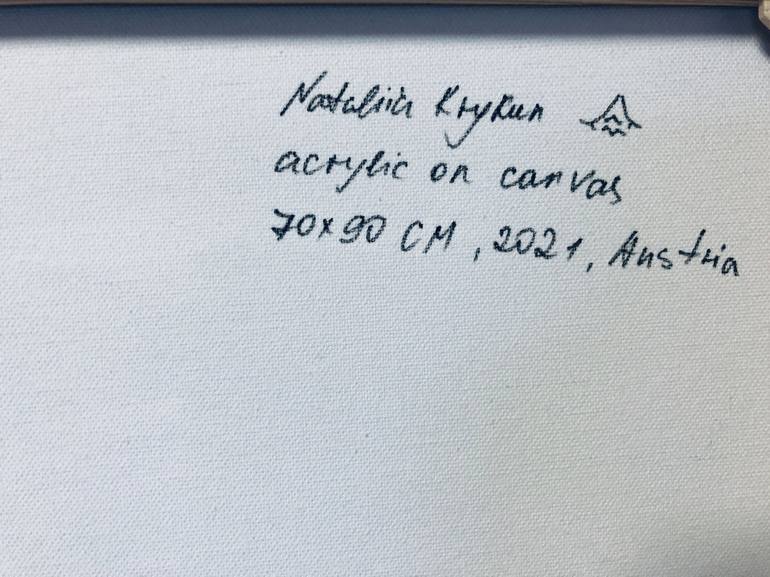 Nataliia Krykun
acrylic on canvas
70x90 CM, 2021, Austria